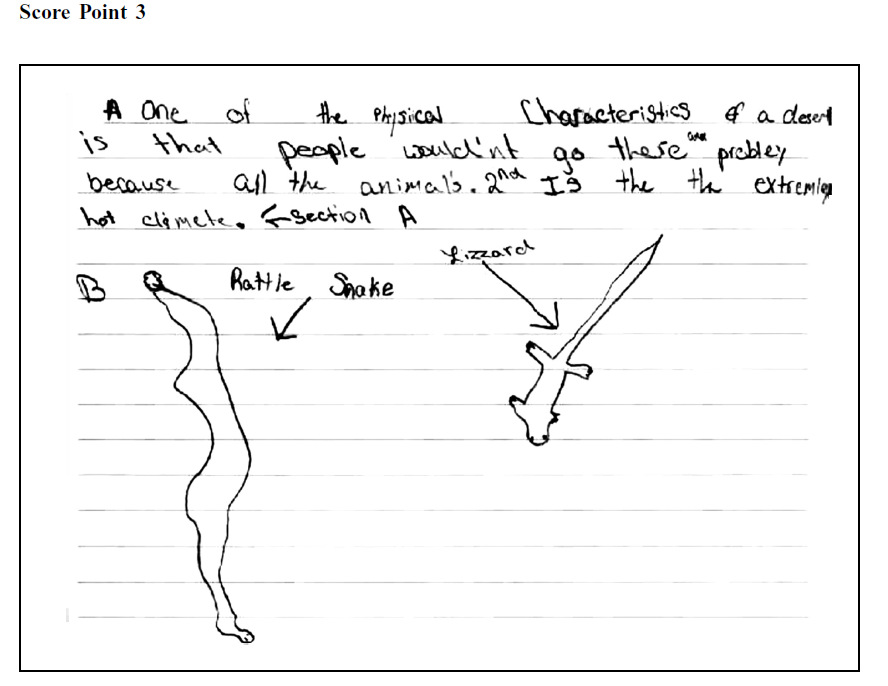 Score Point 3
A One of the Physical Characteristics of a desert
is that people would'nt go there prebley
because all the animal's. 2nd Is the the extremley
hot climete. ←section A
Lizzard
B Rattle Snake